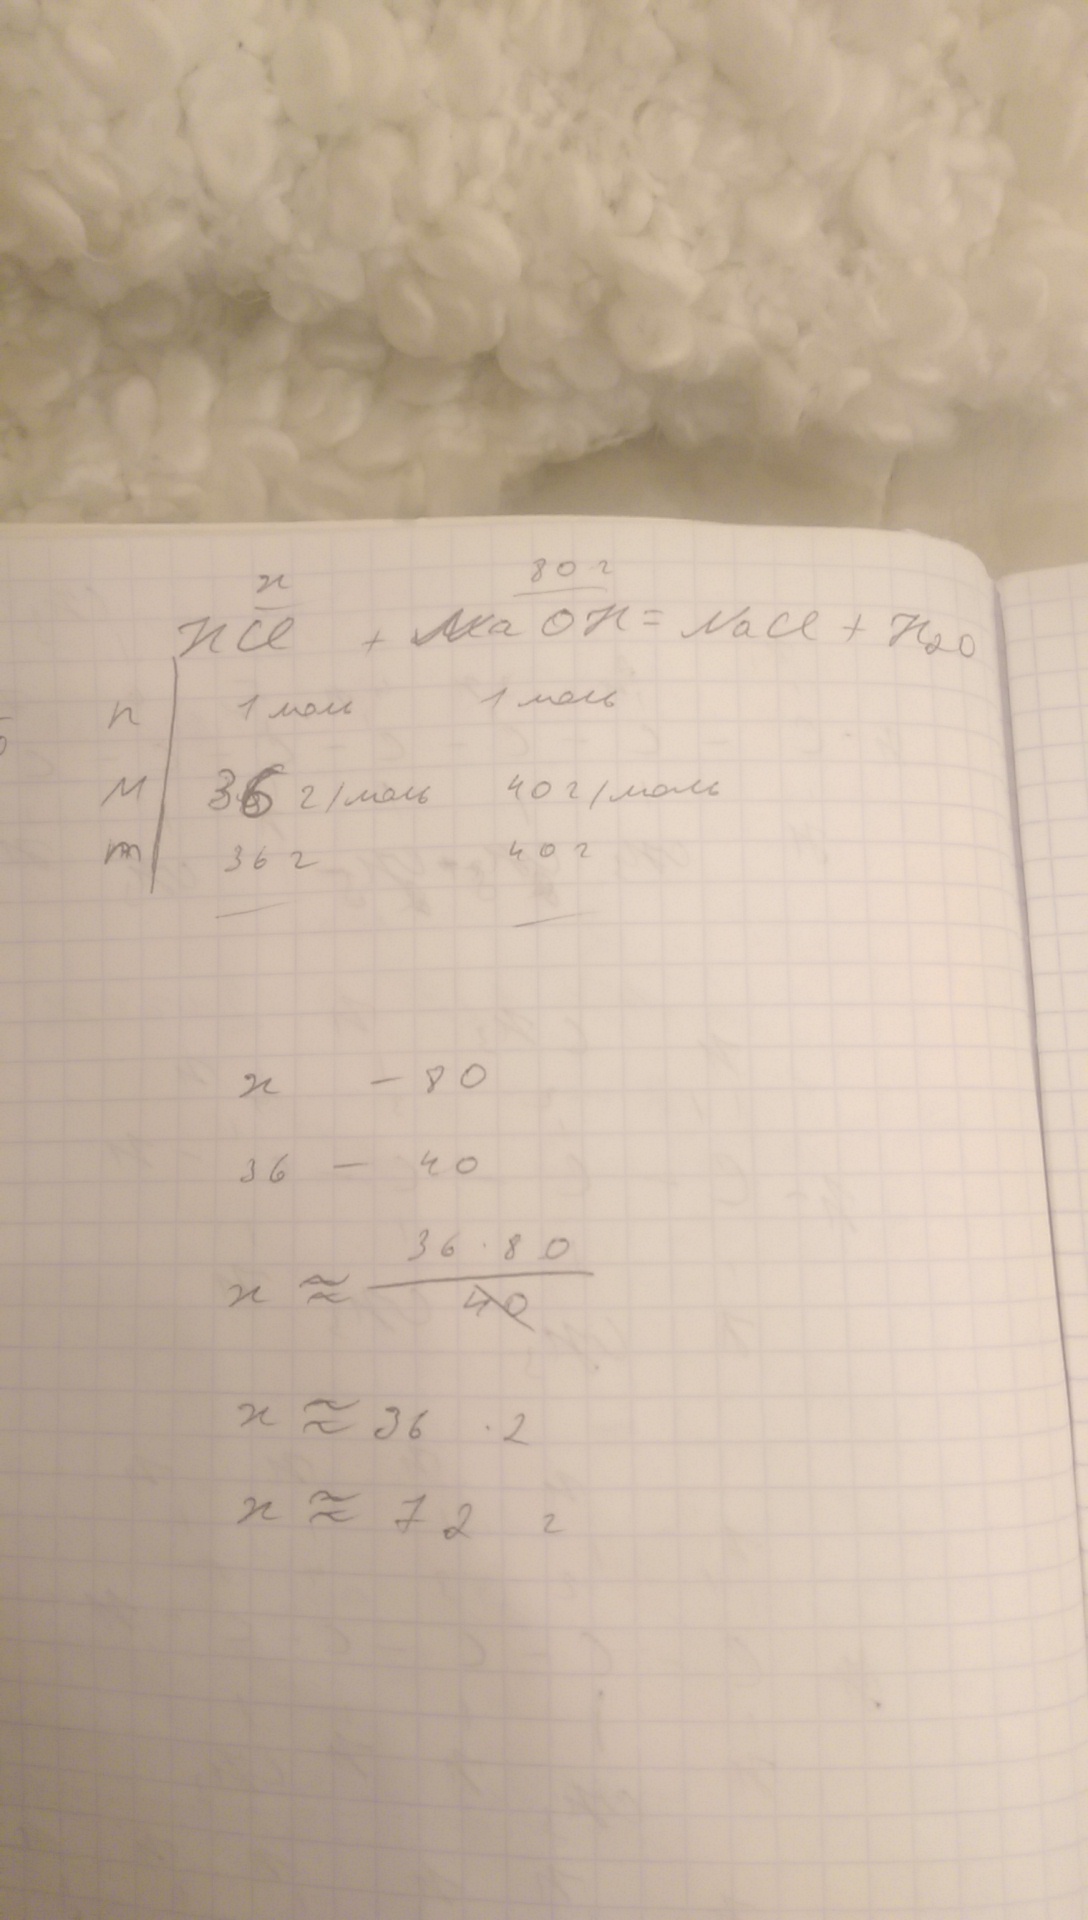 x 80 г
HCl + NaOH = NaCl + H2O
n 1 моль 1 моль
M 36 г/моль 40 г/моль
m 36 г 40 г
x – 80
36 – 40
x ≈ 36 · 80 / 40
x ≈ 36 · 2
x ≈ 72 г